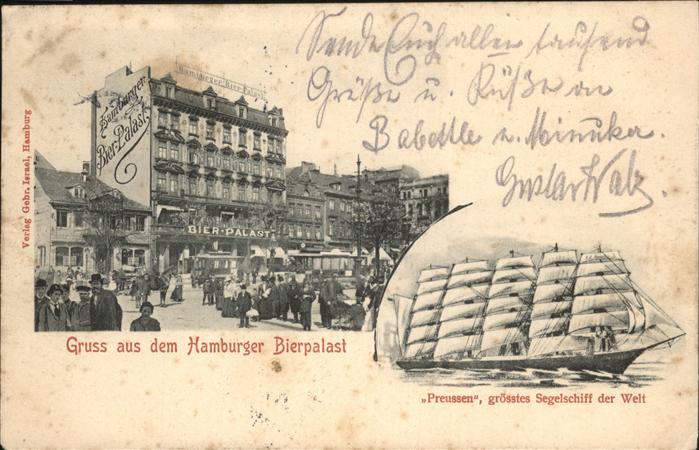 Hamburger Bier-Palast
Hamburger
Bier-Palast
BIER-PALAST
Sende Euch allen tausend
Grüße u. Küße an
Babettle u.
Gustav
Verlag Gebr. Israel, Hamburg
Gruss aus dem Hamburger Bierpalast
„Preussen", grösstes Segelschiff der Welt